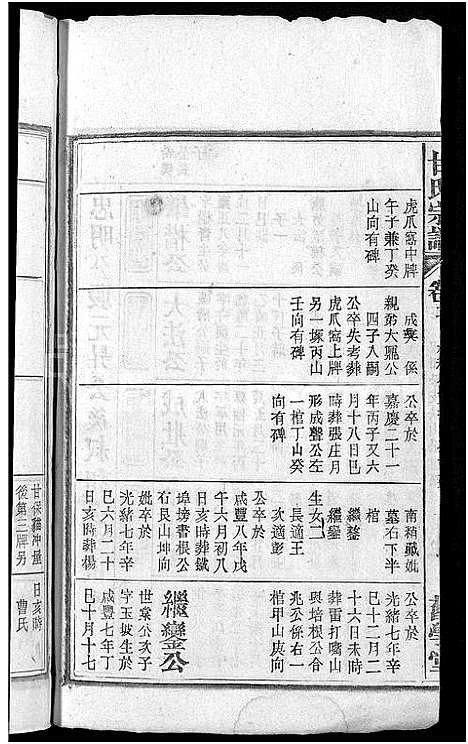 甘氏宗譜
虎爪窩中牌
午子兼丁癸
山向有碑
係
親弟大鳳公
四子入嗣
公卒失考葬
虎爪窩上牌
另一塚丙山
壬向有碑
公卒於
嘉慶二十一
年丙子又六
月十八日巳
時葬張庄月
形成聲公左
一棺丁山癸
向有碑
南稍藏妣
墓右下半
棺
繼鰲
繼鑾
生女二
長適王
次適彭
公卒於
咸豐八年戊
午六月初八
日亥時葬鐵
埠塝書根公
右艮山坤向
妣卒於
光緒七年辛
巳六月二十
日亥時葬楊
公卒於
光緒七年辛
巳十二月二
十六日未時
葬雷打嘴山
與培根公合
兆公係右一
棺甲山庚向
繼鑾公
世棠公次子
字玉坡生於
咸豐七年丁
巳十月十七
甘保貓冲壠
後第三牌另
日亥時
曹氏